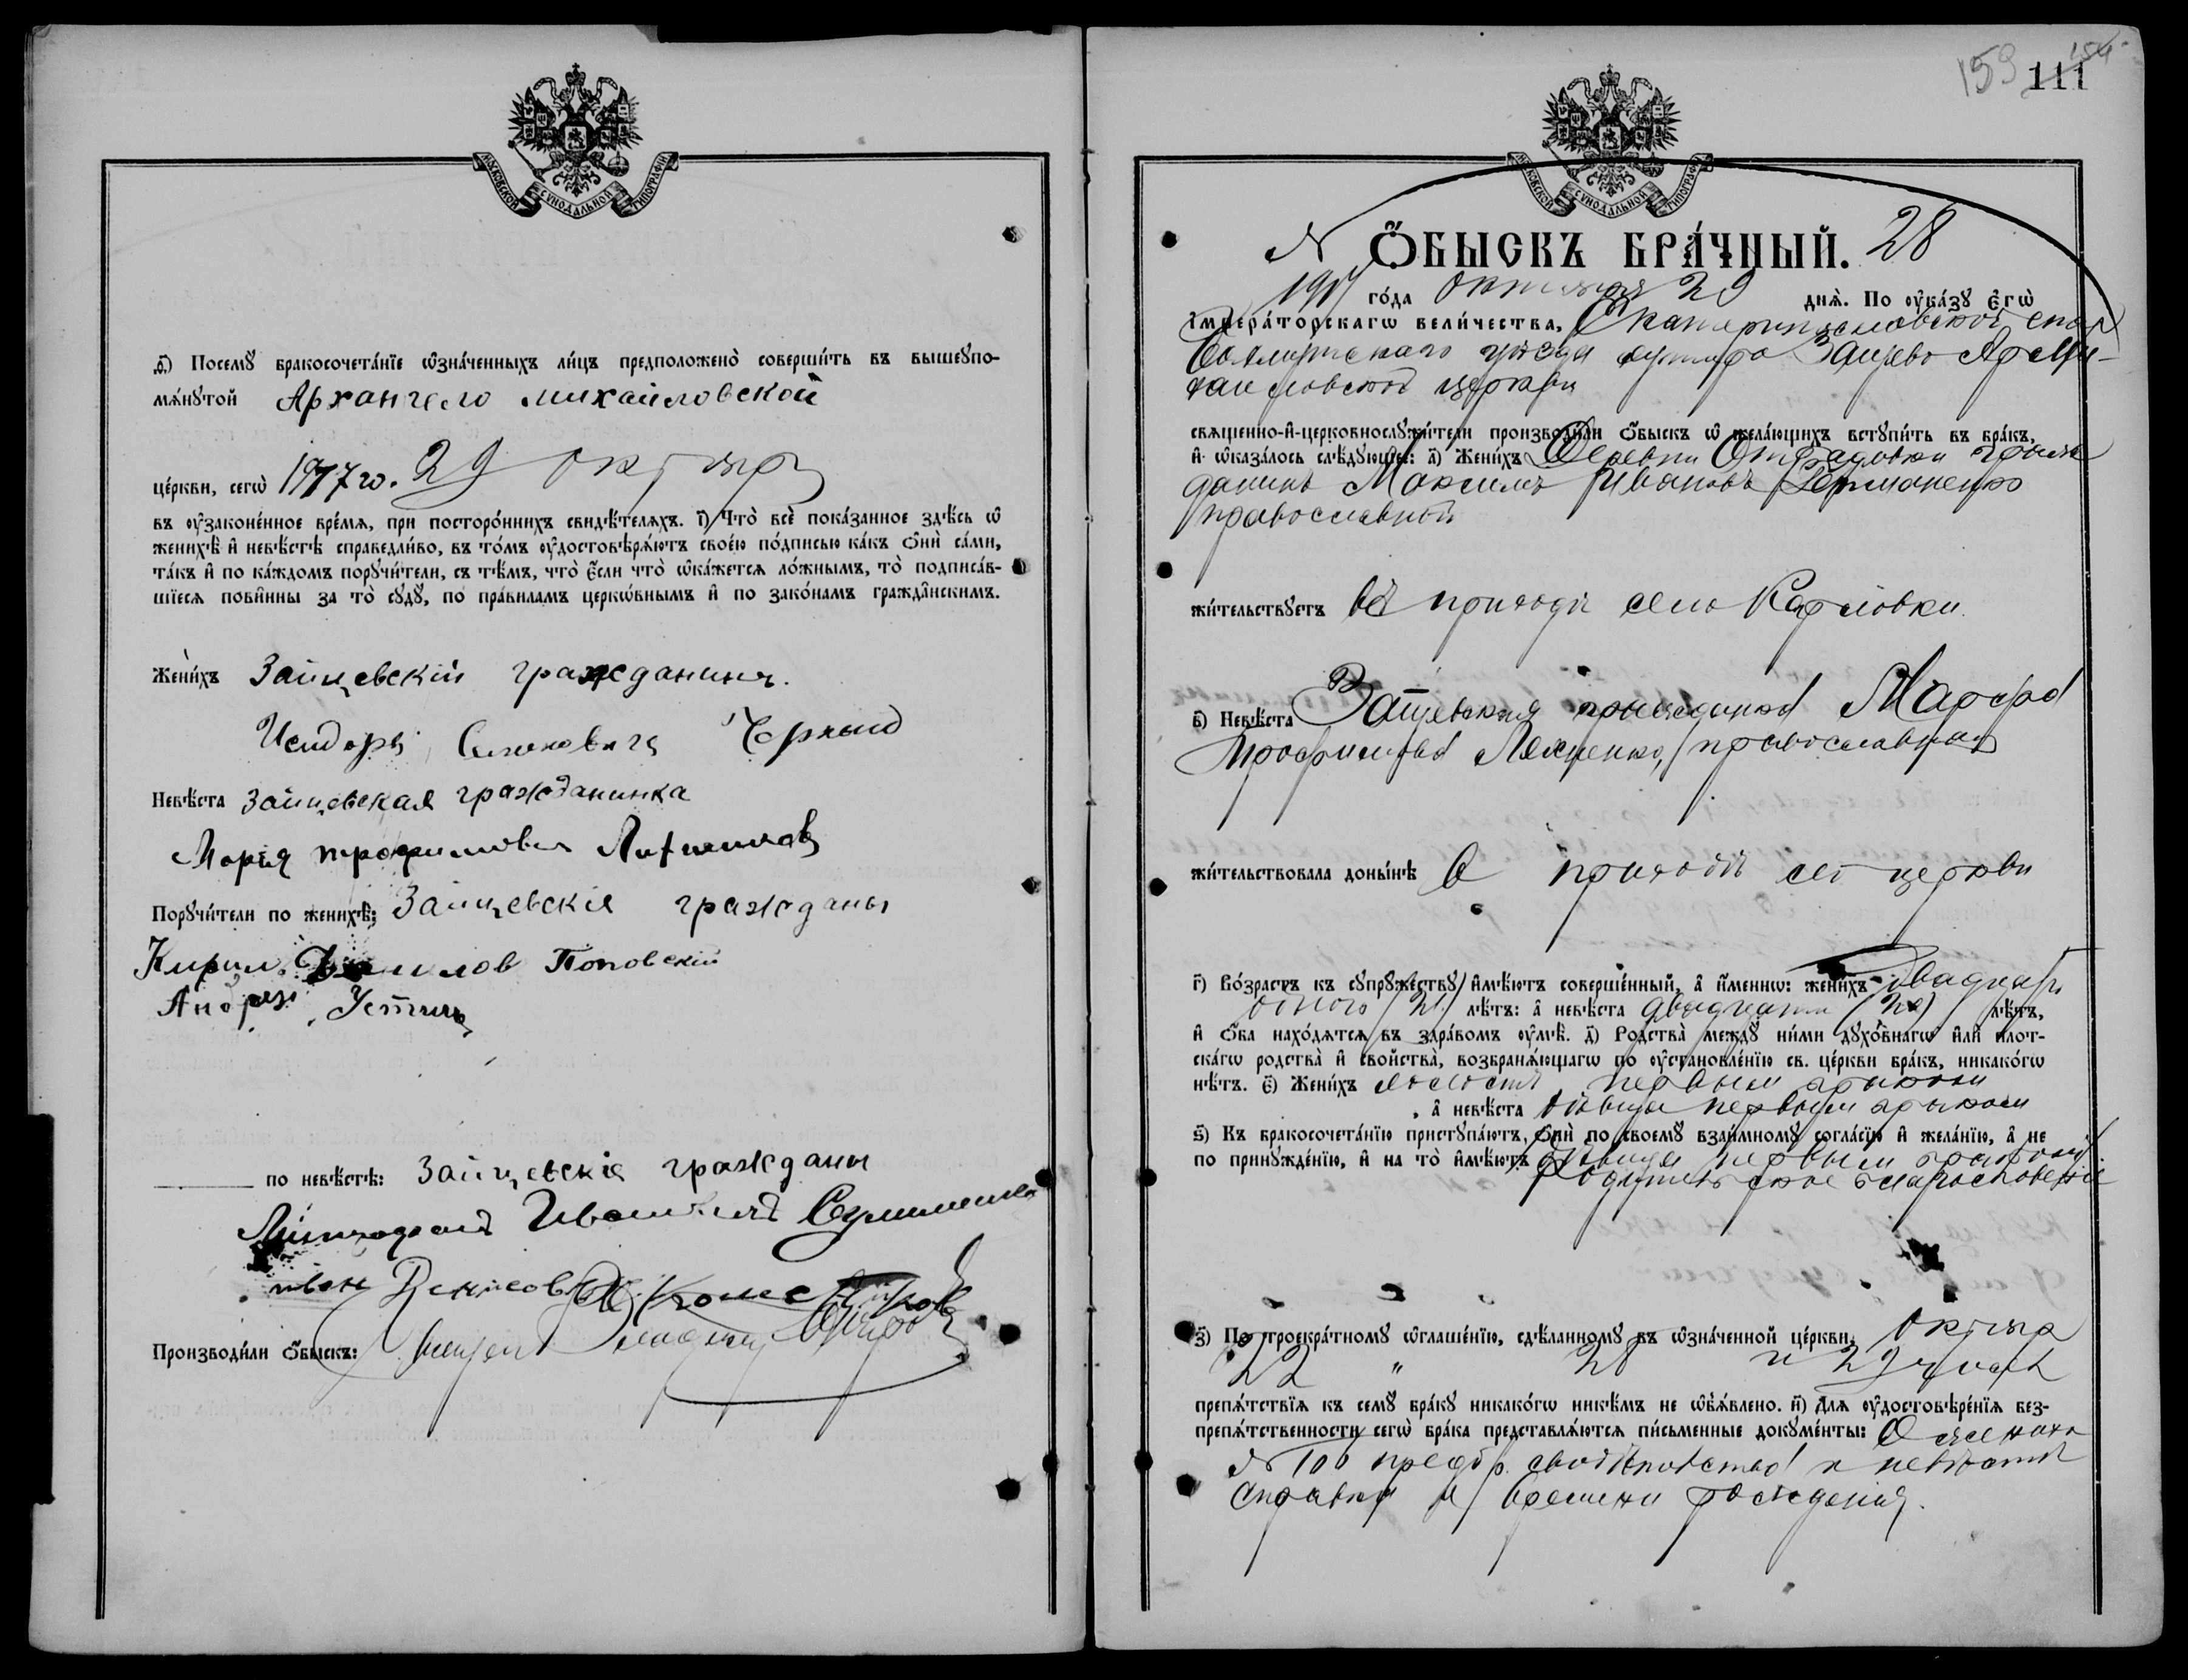 МОСКОВСКОЙ СѴНОДАЛЬНОЙ ТИПОГРАФІИ
ѳ҃) Посемꙋ̀ бракосочета́нїе ѡ҆зна́ченныхъ ли́цъ предположено̀ соверши́ть въ вышеꙋпо-
мѧ́нꙋтой Архангело михайловской
це́ркви, сегѡ̀ 1917 го. 29 октября
въ ᲂу҆законе́нное вре́мѧ, при посторо́ннихъ свидѣ́телѧхъ. і҃) Что̀ всѐ пока́занное здѣ́сь ѡ҆
женихѣ̀ и҆ невѣ́стѣ справедли́во, въ то́мъ ᲂу҆достовѣрѧ́ютъ свое́ю по́дписью ка́къ ѻ҆нѝ са́ми,
та́къ и҆ по ка́ждомъ порꙋчи́тели, съ тѣ́мъ, что̀ є҆́сли что̀ ѡ҆ка́жетсѧ ло́жнымъ, то̀ подписа́в-
шїесѧ пови́нны за то̀ сꙋдꙋ̀, по пра́виламъ церкѡ́внымъ и҆ по зако́намъ гражда́нскимъ.
Жени́хъ Зайцевскій гражданинъ.
Исидоръ Черный
Невѣ́ста Зайцевская гражданинка
Марія трофимовна
Порꙋчи́тели по женихѣ̀: Зайцевскія гражданы
Кирил Поповскій
Андрей
по невѣ́стѣ: Зайцевскія гражданы
иван Денисов
Производи́ли ѻ҆́быскъ:
159 154
111
МОСКОВСКОЙ СѴНОДАЛЬНОЙ ТИПОГРАФІИ
№ Ѻ҆́БЫСКЪ БРА́ЧНЫЙ. 28
1917 го́да октября 29 днѧ̀. По ᲂу҆ка́зꙋ є҆гѡ̀
і҆мпера́торскагѡ вели́чества, Екатеринославской епар
Бахмутскаго уѣзда хутора Зайцево Арх Ми-
хайловской церкви
свѧщенно-и҆-церковнослꙋжи́тели производи́ли ѻ҆́быскъ ѡ҆ жела́ющихъ встꙋпи́ть въ бра́къ,
и҆ ѡ҆каза́лось слѣ́дꙋющее: а҃) Жени́хъ Деревни Отрадовки граж
данинъ Максимъ Ивановъ Германенко
православный
жи́тельствꙋетъ въ приходѣ село Карловки.
в҃) Невѣ́ста Зайцевская гражданка
Трофимова православная
жи́тельствовала доны́нѣ в приходѣ сей церкви
г҃) Во́зрастъ къ сꙋпрꙋ́жествꙋ и҆мѣ́ютъ соверше́нный, а҆ и҆́меннѡ: жени́хъ двадцать
одного (21) лѣ́тъ: а҆ невѣ́ста двадцати (20) лѣ́тъ,
и҆ ѻ҆́ба нахо́дѧтсѧ въ здра́вомъ ᲂу҆мѣ̀. д҃) Родства̀ междꙋ̀ ни́ми дꙋхо́внагѡ и҆лѝ плот-
ска́гѡ родства̀ и҆ сво́йства̀, возбранѧ́ющагѡ по ᲂу҆становле́нїю св. це́ркви бра́къ, никако́гѡ
нѣ́тъ. є҃) Жени́хъ холостъ, первымъ бракомъ
, а҆ невѣ́ста дѣвица первымъ бракомъ
ѕ҃) Къ бракосочета́нїю пристꙋпа́ютъ, ѻ҆нѝ по своемꙋ̀ взаи́мномꙋ согла́сїю и҆ жела́нїю, а҆ не
по принꙋжде́нїю, и҆ на то̀ и҆мѣ́ютъ дѣвица первымъ бракомъ
Родительское благословеніе
з҃) По троекра́тномꙋ ѡ҆глаше́нїю, сдѣ́ланномꙋ въ ѡ҆зна́ченной це́ркви, октября
22 " 28 и 29 числа
препѧ́тствїѧ къ семꙋ̀ бра́кꙋ никако́гѡ никѣ́мъ не ѡ҆б̾ѧ́влено. и҃) Длѧ̀ ᲂу҆достовѣре́нїѧ без-
препѧ́тственности сегѡ̀ бра́ка представлѧ́ютсѧ пи́сьменные докꙋме́нты: О жениха
№ 100 предбр. свидѣтельство и невѣсты
справка и времени рожденія.